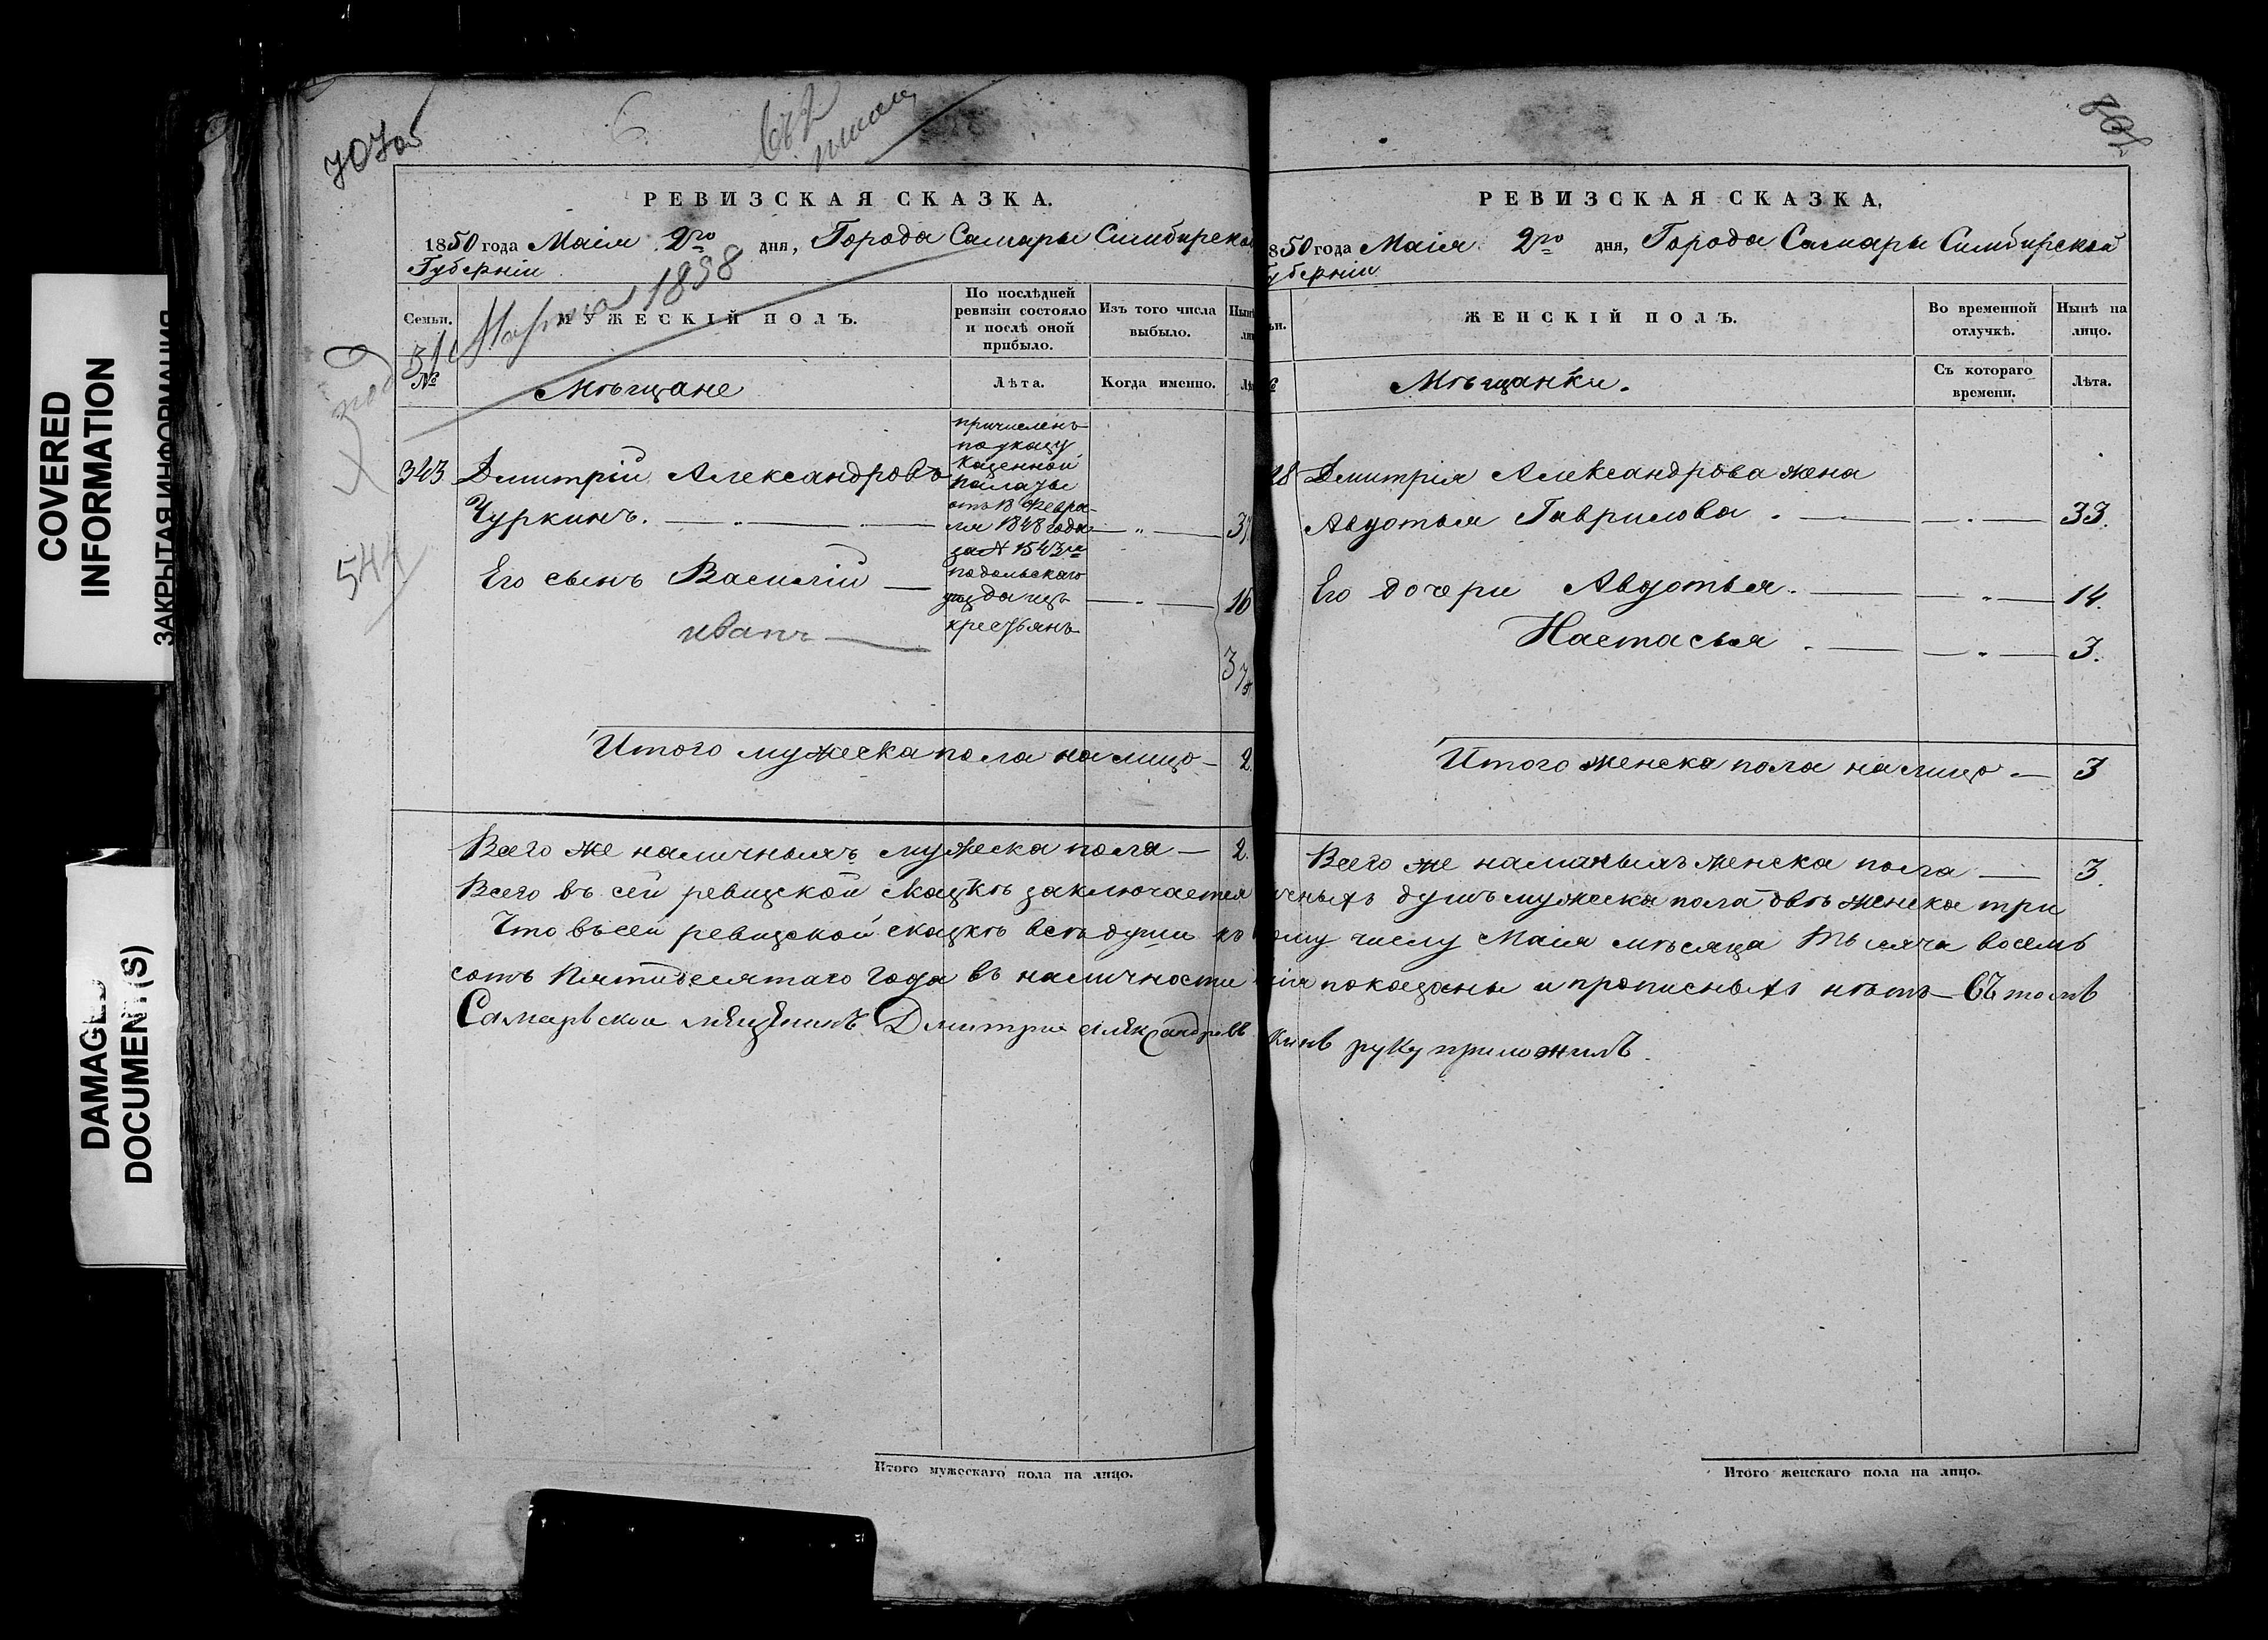 COVERED
INFORMATION
ЗАКРЫТАЯ ИНФОРМАЦИЯ
DAMAGED
DOCUMENT(S)
707об
РЕВИЗСКАЯ СКАЗКА.
1850 года Маія 2го дня, Города Самары Симбирской
Губерніи
Марта 1898
Семьи.
МУЖЕСКІЙ ПОЛЪ.
По послѣдней
ревизіи состояло
и послѣ оной
прибыло.
Изъ того числа
выбыло.
№
Мѣщане
Лѣта.
Когда именно.
причисленъ
по указу
Казенной
Палаты
отъ 13 Февра-
ля 1848 года
за № 1543м
подольскаго
уѣзда изъ
крестьянъ
343 Дмитрій Александровъ
Чуркинъ.
Его сынъ Василій 16
иванъ
544
Итого мужеска пола на лицо 2.
Всего же наличныхъ мужеска пола 2.
Всего въ сей ревизской сказкѣ заключается
Что въ сей ревизской сказкѣ всѣ души къ
сотъ Пятидесятаго Года въ наличности
Самарскои мѣщенинъ Дмитрие Александровъ
Итого мужескаго пола на лицо.
РЕВИЗСКАЯ СКАЗКА.
850 года Маія 2го дня, Города Самары Симбирской
уберніи
ЖЕНСКІЙ ПОЛЪ.
Во временной
отлучкѣ.
Нынѣ на
лицо.
Мѣщанки.
Съ котораго
времени.
Лѣта.
Дмитрія Александрова жена
Авдотья Гаврилова 33.
Его дочери Авдотья. 14.
Настасья 3.
Итого женска пола на лицо 3
Всего же наличныхъ женска пола 3.
чныхъ душъ мужеска пола двѣ женска три
ому числу Маія мѣсяца Тысяча восемь
ія показаны и прописныхъ нѣтъ Въ томъ
кинъ руку приложилъ.
Итого женскаго пола на лицо.